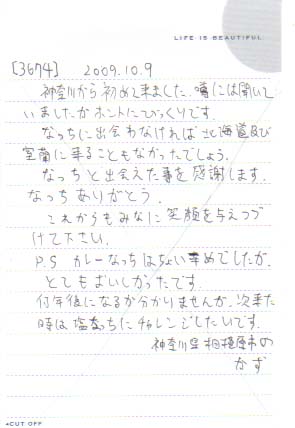 LIFE IS BEAUTIFUL
[3674] 2009.10.9
神奈川から初めて来ました。噂には聞いて
いましたがホントにびっくりです。
なっちに出会わなければ北海道及び
室蘭に来ることもなかったでしょう。
なっちと出会えた事を感謝します。
なっちありがとう。
これからもみなに笑顔を与えつづ
けて下さい。
P.S カレーなっちはちょい辛めでしたが、
とてもおいしかったです。
何年後になるか分かりませんが、次来た
時は塩なっちにチャレンジしたいです。
神奈川県相模原市の
かず
◂CUT OFF